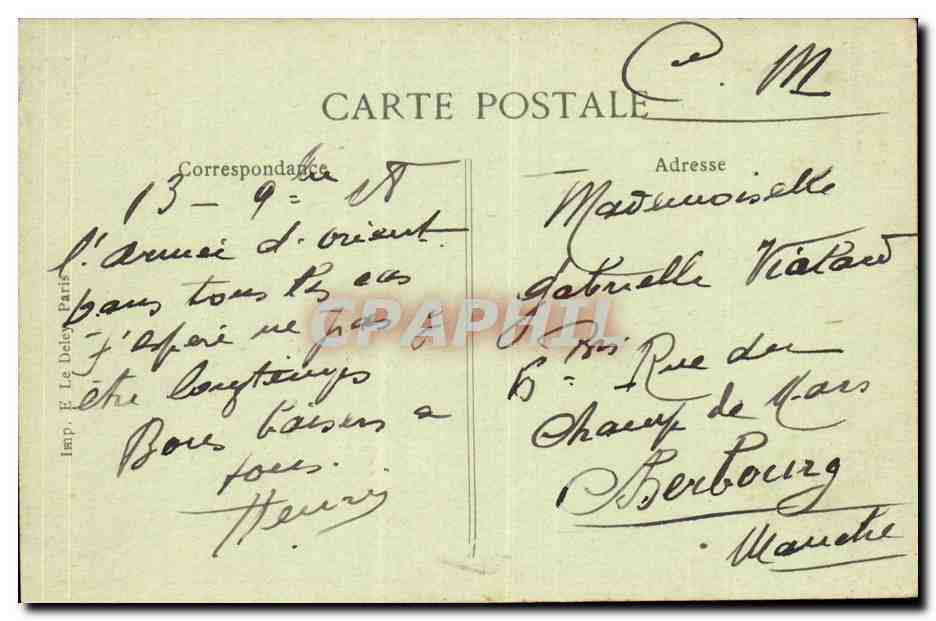 Ce. M
CARTE POSTALE
Correspondance
13 - 9=bre 18
l'armée d'orient
pans tous les cas
J'espère ne pas y
être longtemps
Bons baisers a
tous.
Henri
Adresse
Mademoiselle
Gabrielle Viatard
6=Bis Rue du
Champ de Mars
Cherbourg
Manche
Imp. E. Le Deley, Paris
CPAPHIL